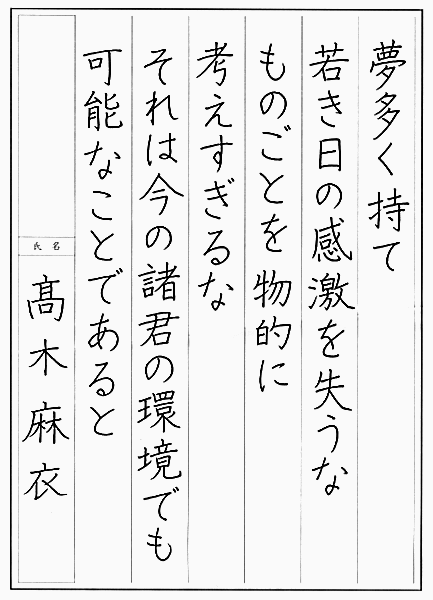 夢多く持て
若き日の感激を失うな
ものごとを物的に
考えすぎるな
それは今の諸君の環境でも
可能なことであると
氏名
髙木麻衣